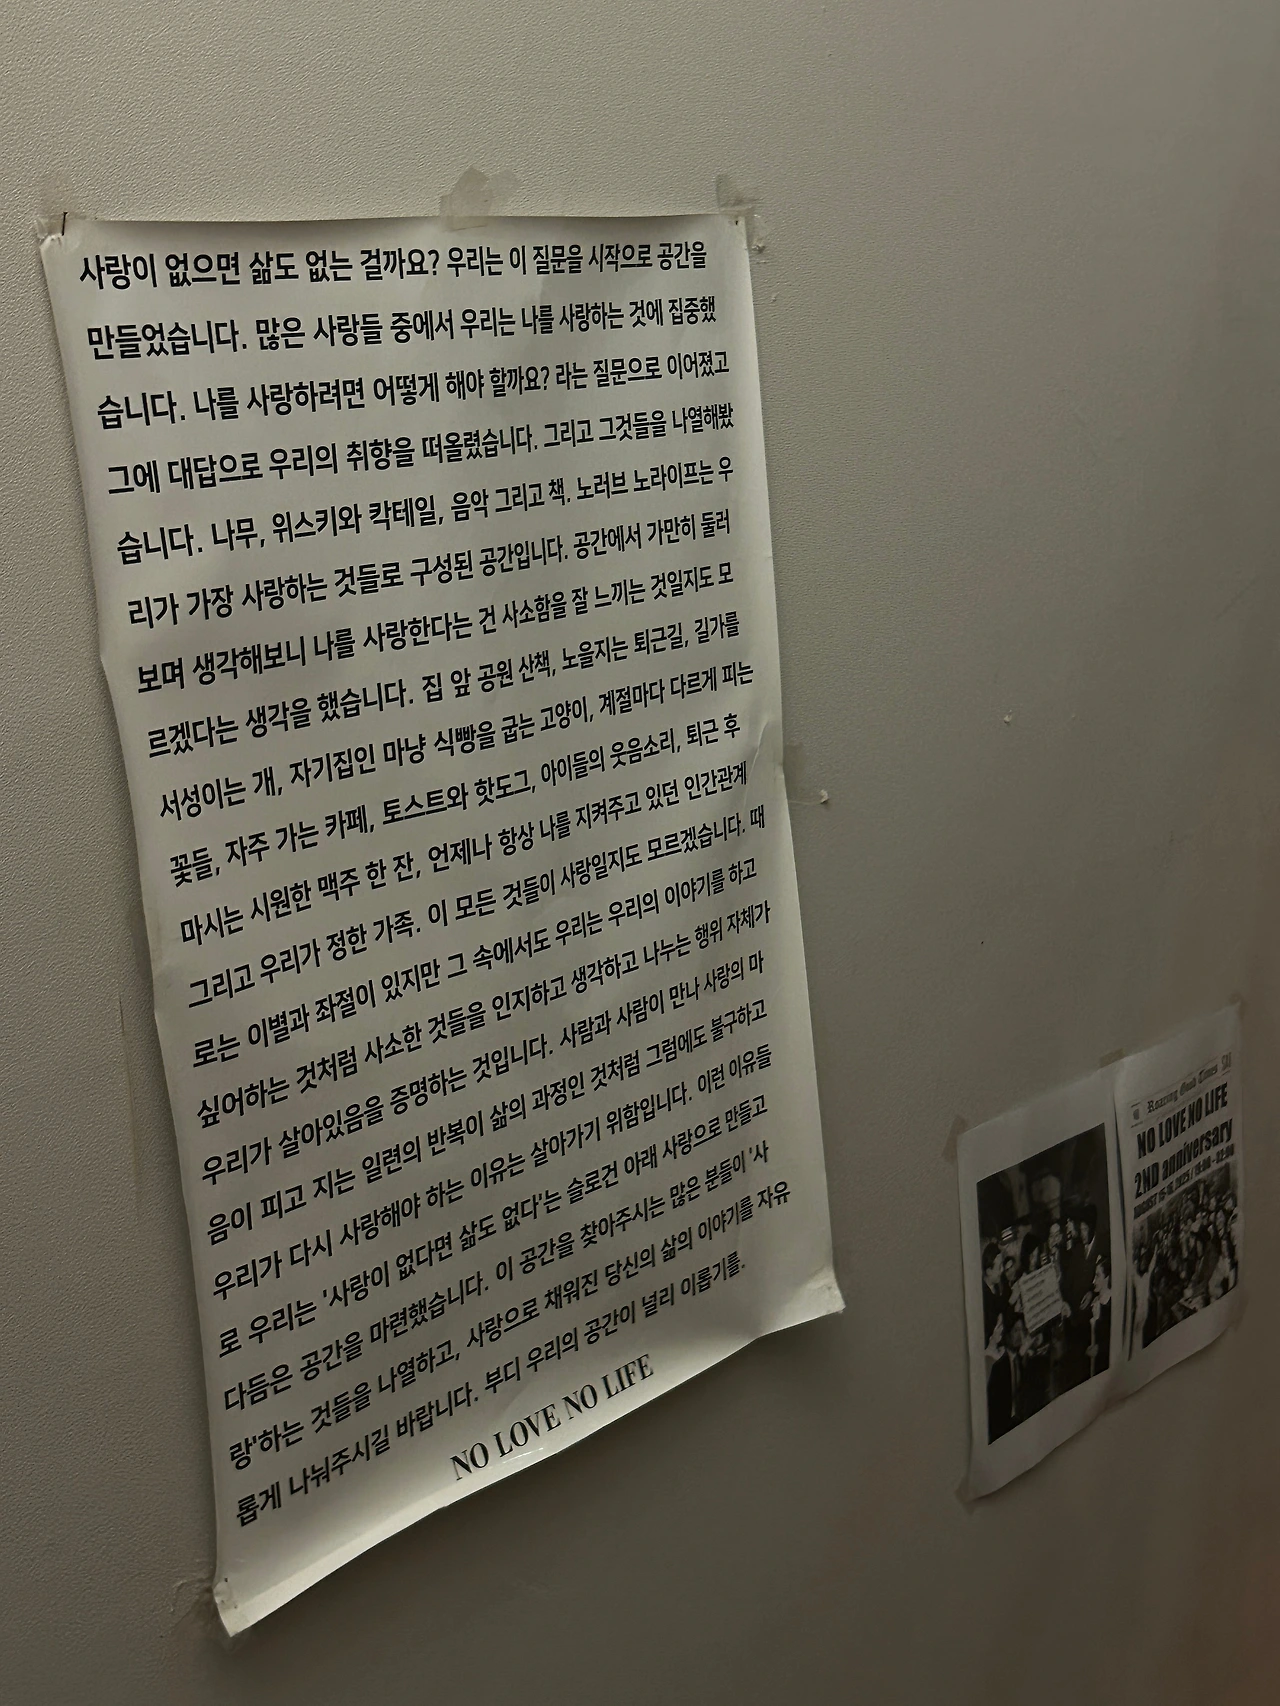 사랑이 없으면 삶도 없는 걸까요? 우리는 이 질문을 시작으로 공간을
만들었습니다. 많은 사랑들 중에서 우리는 나를 사랑하는 것에 집중했
습니다. 나를 사랑하려면 어떻게 해야 할까요? 라는 질문으로 이어졌고
그에 대답으로 우리의 취향을 떠올렸습니다. 그리고 그것들을 나열해봤
습니다. 나무, 위스키와 칵테일, 음악 그리고 책. 노러브 노라이프는 우
리가 가장 사랑하는 것들로 구성된 공간입니다. 공간에서 가만히 둘러
보며 생각해보니 나를 사랑한다는 건 사소함을 잘 느끼는 것일지도 모
르겠다는 생각을 했습니다. 집 앞 공원 산책, 노을지는 퇴근길, 길가를
서성이는 개, 자기집인 마냥 식빵을 굽는 고양이, 계절마다 다르게 피는
꽃들, 자주 가는 카페, 토스트와 핫도그, 아이들의 웃음소리, 퇴근 후
마시는 시원한 맥주 한 잔, 언제나 항상 나를 지켜주고 있던 인간관계
그리고 우리가 정한 가족. 이 모든 것들이 사랑일지도 모르겠습니다. 때
로는 이별과 좌절이 있지만 그 속에서도 우리는 우리의 이야기를 하고
싶어하는 것처럼 사소한 것들을 인지하고 생각하고 나누는 행위 자체가
우리가 살아있음을 증명하는 것입니다. 사람과 사람이 만나 사랑의 마
음이 피고 지는 일련의 반복이 삶의 과정인 것처럼 그럼에도 불구하고
우리가 다시 사랑해야 하는 이유는 살아가기 위함입니다. 이런 이유들
로 우리는 '사랑이 없다면 삶도 없다'는 슬로건 아래 사랑으로 만들고
다듬은 공간을 마련했습니다. 이 공간을 찾아주시는 많은 분들이 '사
랑'하는 것들을 나열하고, 사랑으로 채워진 당신의 삶의 이야기를 자유
롭게 나눠주시길 바랍니다. 부디 우리의 공간이 널리 이롭기를.
NO LOVE NO LIFE
Roaring Good Times
NO LOVE NO LIFE
2ND anniversary